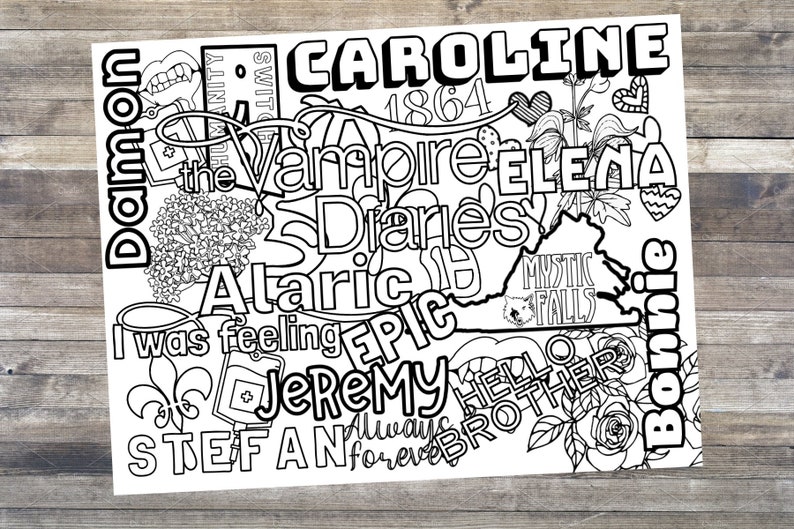 Damon
HUMANITY
SWITCH
CAROLINE
1864
the Vampire
Diaries
ELENA
Alaric
MYSTIC
FALLS
I was feeling
EPIC
JEREMY
HELLO
BROTHER
Bonnie
STEFAN
Always
forever